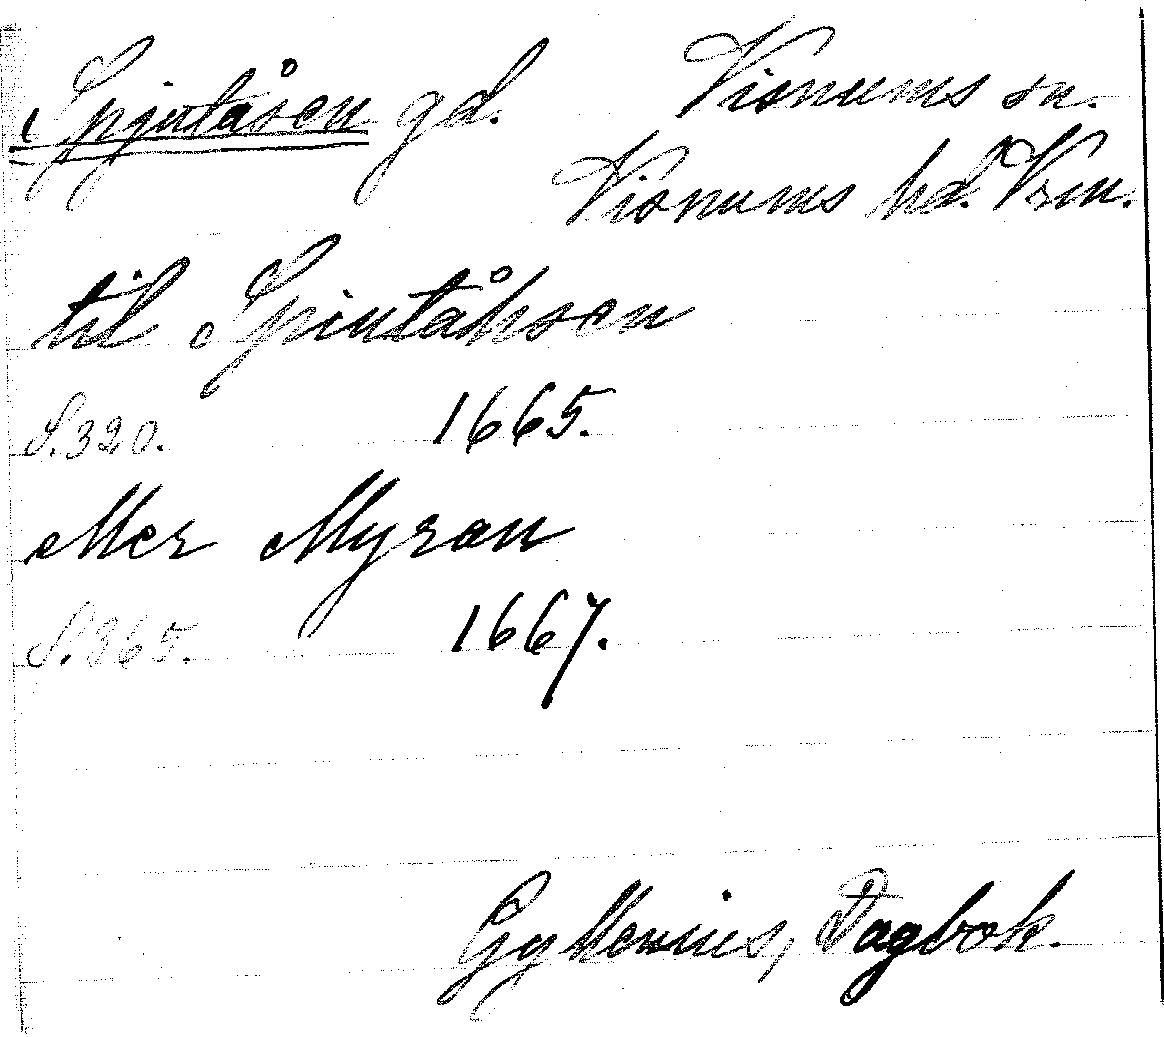 Spjutåsen gd. Visnums sn.
Visnums hd. Vrm.
til Spiutåhsen
S. 320. 1665.
Mer Myran
S. 365. 1667.
Gyllenius, Dagbok.